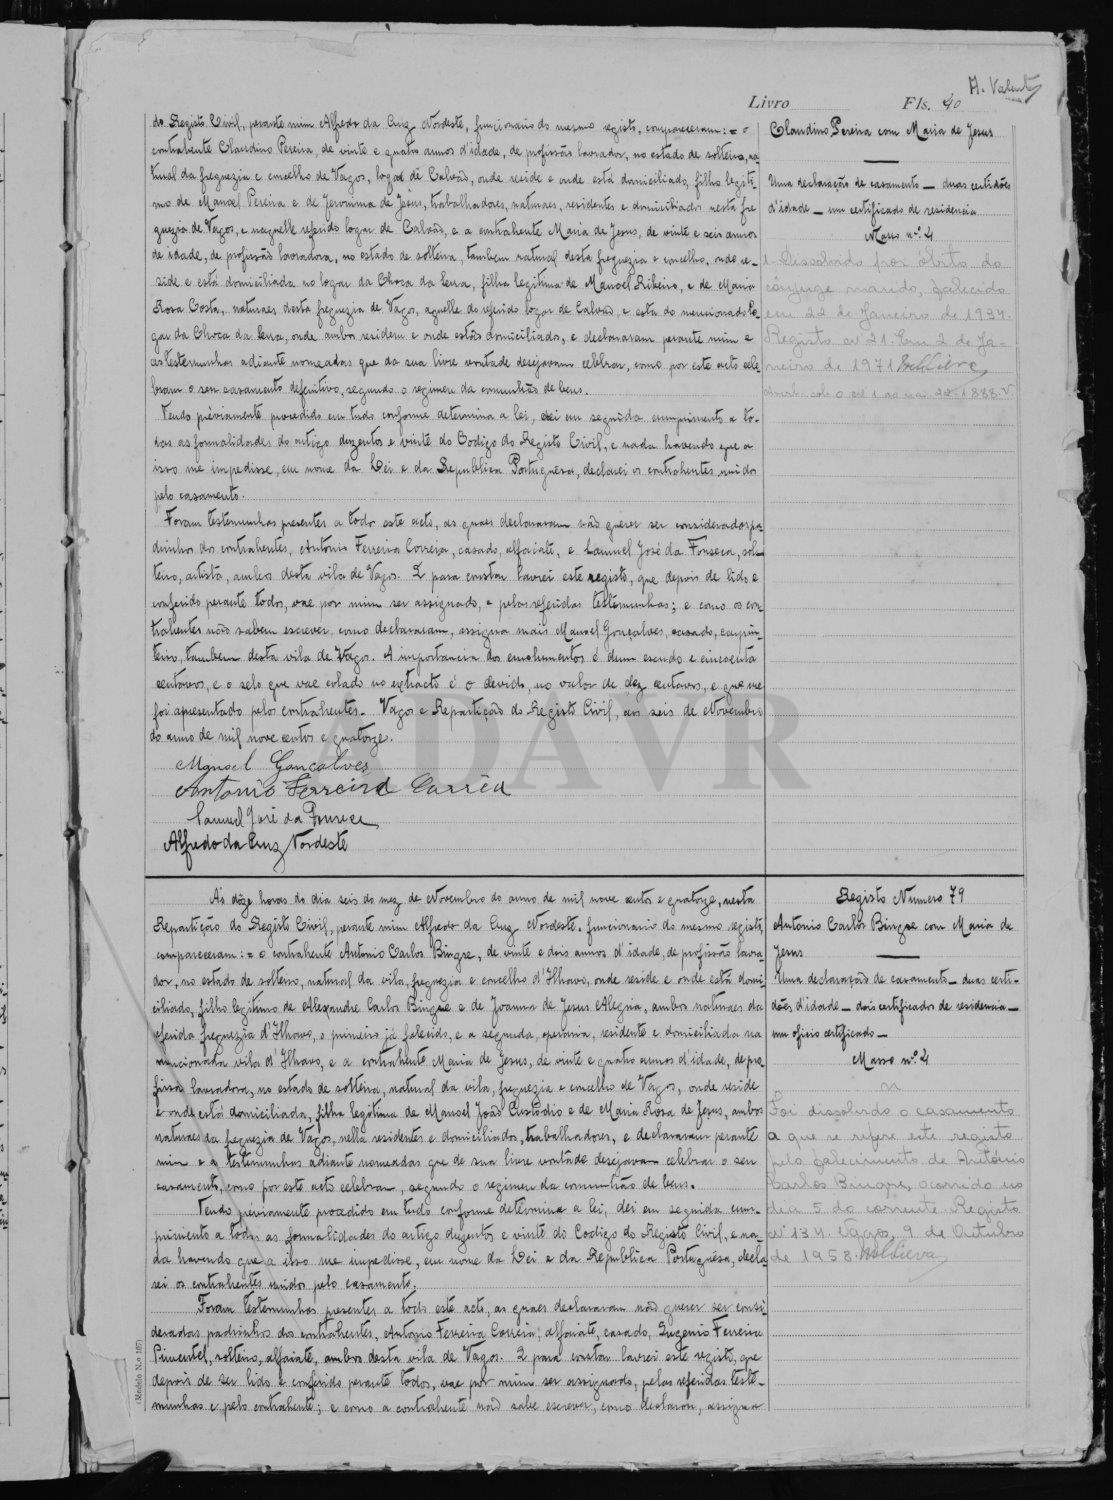 A. Valente
Livro Fls. 40
do Registo Civil, perante mim Alfredo da Cruz Nordeste, funcionario do mesmo registo, compareceram: = o
contrahente Claudino Pereira, de vinte e quatro annos d'idade, de profissão lavrador, no estado de solteiro, na-
tural da freguezia e concelho de Vagos, logar de Calvão, onde reside e onde está domiciliado, filho legiti-
mo de Manoel Pereira e de Jeronima de Jesus, trabalhadores, naturaes, residentes e domiciliados nesta fre
guezia de Vagos, e naquelle referido logar de Calvão, e a contrahente Maria de Jesus, de vinte e seis annos
de idade, de profissão lavradora, no estado de solteira, tambem natural desta freguezia e concelho, onde re-
side e está domiciliada no logar da Choca da Serra, filha legitima de Manoel Ribeiro, e de Maria
Rosa Costa, naturaes desta freguezia de Vagos, aquelle do referido logar de Calvão, e esta do mencionado lo
gar da Choca da Serra, onde ambos residem e onde estão domiciliados, e declararam perante mim e
as testemunhas adiante nomeadas que da sua livre vontade desejavam celebrar, como por este acto cele
bram o seu casamento definitivo, segundo o regimen da comunhão de bens.
Tendo préviamente procedido em tudo conforme determina a lei, dei em seguida cumprimento a to-
das as formalidades do artigo duzentos e vinte do Codigo do Registo Civil, e nada havendo que a
isso me impedisse, em nome da Lei e da Republica Portugueza, declarei os contrahentes unidos
pelo casamento.
Foram testemunhas presentes a todo este acto, as quaes declararam não querer ser considerados pa
drinhos dos contrahentes, Antonio Ferreira Correia, casado, alfaiate, e Samuel José da Fonseca, sol-
teiro, artista, ambos desta vila de Vagos. E para constar lavrei este registo, que depois de lido e
conferido perante todos, vae por mim ser assignado, e pelas referidas testemunhas; e como os con-
trahentes não sabem escrever, como declararam, assigna mais Manoel Gonçalves, casado, carpin-
teiro, tambem desta vila de Vagos. A importancia dos emolumentos é dum escudo e cincoenta
centavos, e o selo que vae colado no extracto é o devido, no valor de dez centavos, e que me
foi apresentado pelos contrahentes. Vagos e Repartição do Registo Civil, aos seis de Novembro
do anno de mil nove centos e quatorze.
Manoel Gonçalves
Antonio Ferreira Corrêa
Samuel José da Fonseca
Alfredo da Cruz Nordeste
Claudino Pereira com Maria de Jesus
Uma declaração de casamento — duas certidões
d'idade — um certificado de residencia
Masso nº. 4
1 Dissolvido por óbito do
cônjuge marido, falecido
em 22 de Janeiro de 1934.
Registo nº 21. Em 2 de Ja-
neiro de 1971
ADAVR
As dôze horas do dia seis do mez de Novembro do anno de mil nove centos e quatorze, nesta
Repartição do Registo Civil, perante mim Alfredo da Cruz Nordeste, funcionario do mesmo registo,
compareceram: = o contrahente Antonio Carlos Bingre, de vinte e dois annos d'idade, de profissão lavra-
dor, no estado de solteiro, natural da vila, freguezia e concelho d'Ilhavo, onde reside e onde está domi-
ciliado, filho legitimo de Alexandre Carlos Bingre e de Joanna de Jesus Alegria, ambos naturaes da
referida freguezia d'Ilhavo, o primeiro já falecido, e a segunda, operaria, residente e domiciliada na
mencionada vila d'Ilhavo, e a contrahente Maria de Jesus, de vinte e quatro annos d'idade, de pro
fissão lavradora, no estado de solteira, natural da vila, freguezia e concelho de Vagos, onde reside
e onde está domiciliada, filha legitima de Manoel João Custodio e de Maria Rosa de Jesus, ambos
naturaes da freguezia de Vagos, nella residentes e domiciliados, trabalhadores, e declararam perante
mim e as testemunhas adiante nomeadas que de sua livre vontade desejavam celebrar o seu
casamento, como por este acto celebram, segundo o regimen da comunhão de bens.
Tendo préviamente procedido em tudo conforme determina a lei, dei em seguida cum-
primento a todas as formalidades do artigo duzentos e vinte do Codigo do Registo Civil, e na-
da havendo que a isso me impedisse, em nome da Lei e da Republica Portugueza, decla
rei os contrahentes unidos pelo casamento.
Foram testemunhas presentes a todo este acto, as quaes declararam não querer ser consi
deradas padrinhos dos contrahentes, Antonio Ferreira Correia, alfaiate, casado, Eugenio Ferreira
Pimentel, solteiro, alfaiate, ambos desta vila de Vagos. E para constar lavrei este registo, que
depois de ser lido e conferido perante todos, vae por mim ser assignado, pelas referidas teste-
munhas e pelo contrahente; e como a contrahente não sabe escrever, como declarou, assigna
Registo Numero 79
Antonio Carlos Bingre com Maria de
Jesus
Uma declaração de casamento — duas certi-
dões d'idade — dois certificados de residencia —
um oficio certificado —
Masso nº. 4
Foi dissolvido o casamento
a que se refere este registo
pelo falecimento de António
Carlos Bingre, ocorrido no
dia 5 do corrente. Registo
nº 134. Vagos, 9 de Outubro
de 1958.
(Modelo N.o 167)